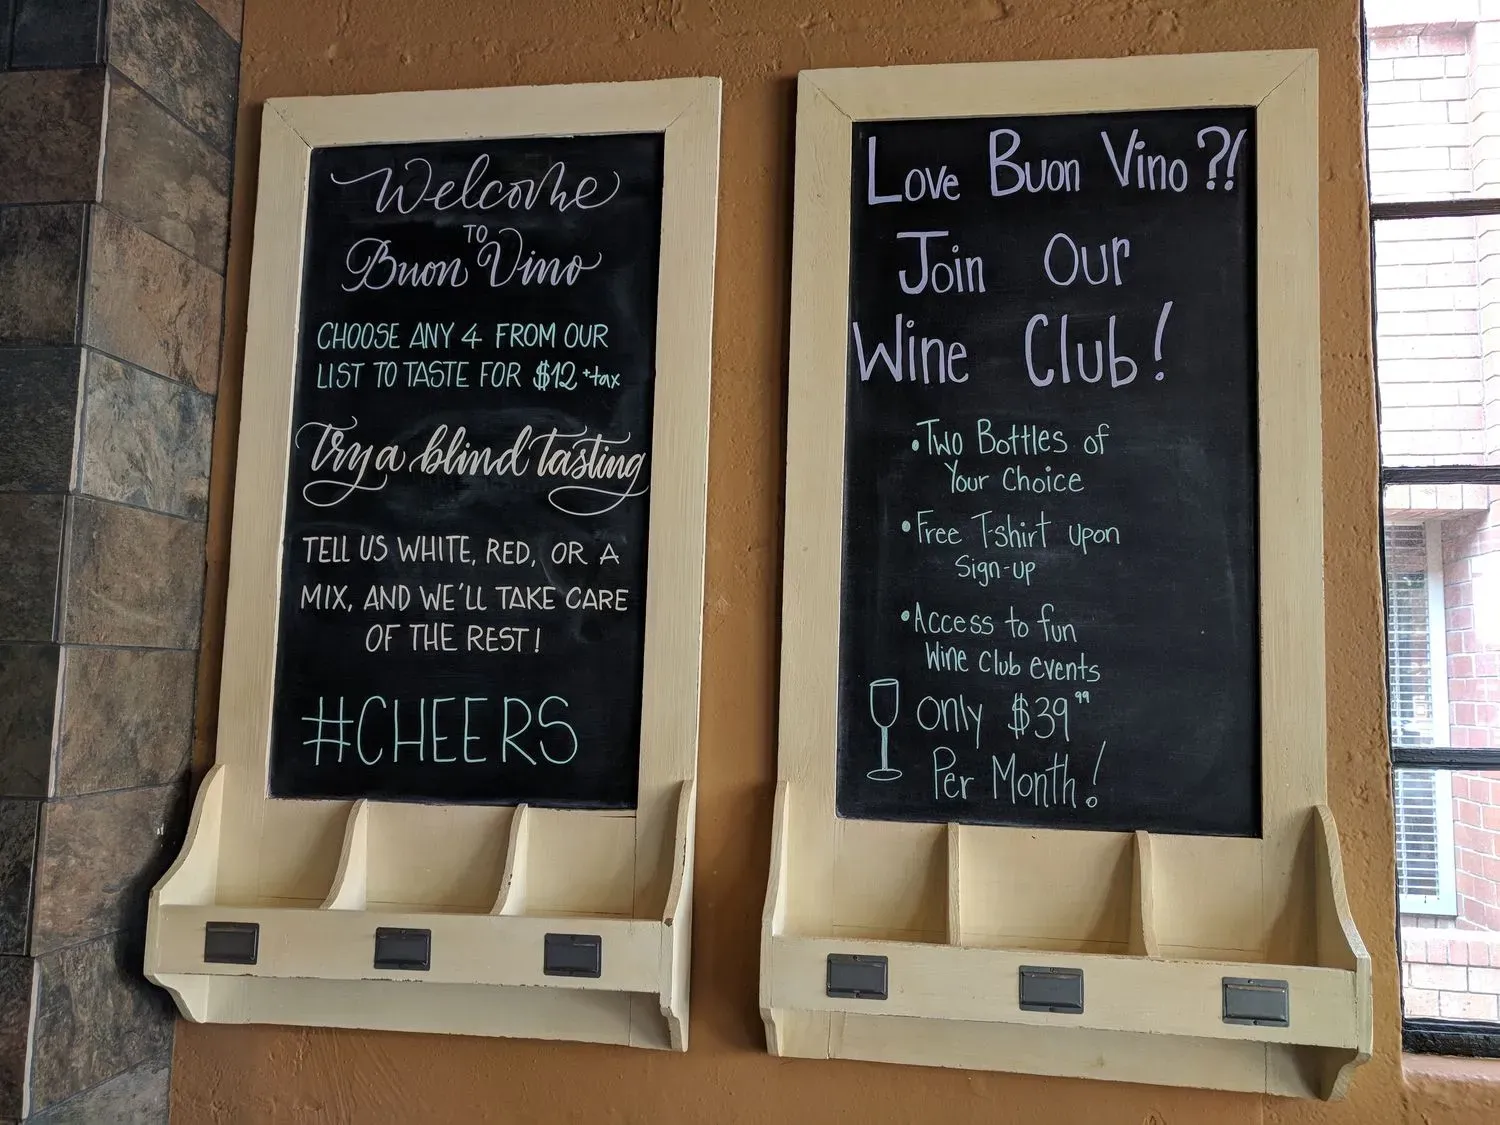 Welcome
TO
Buon Vino
CHOOSE ANY 4 FROM OUR
LIST TO TASTE FOR $12 +tax
Try a blind tasting
TELL US WHITE, RED, OR A
MIX, AND WE'LL TAKE CARE
OF THE REST!
#CHEERS
Love Buon Vino?!
Join Our
Wine Club!
• Two Bottles of
Your Choice
• Free T-shirt upon
Sign-up
• Access to fun
Wine Club events
Only $39.99
Per Month!